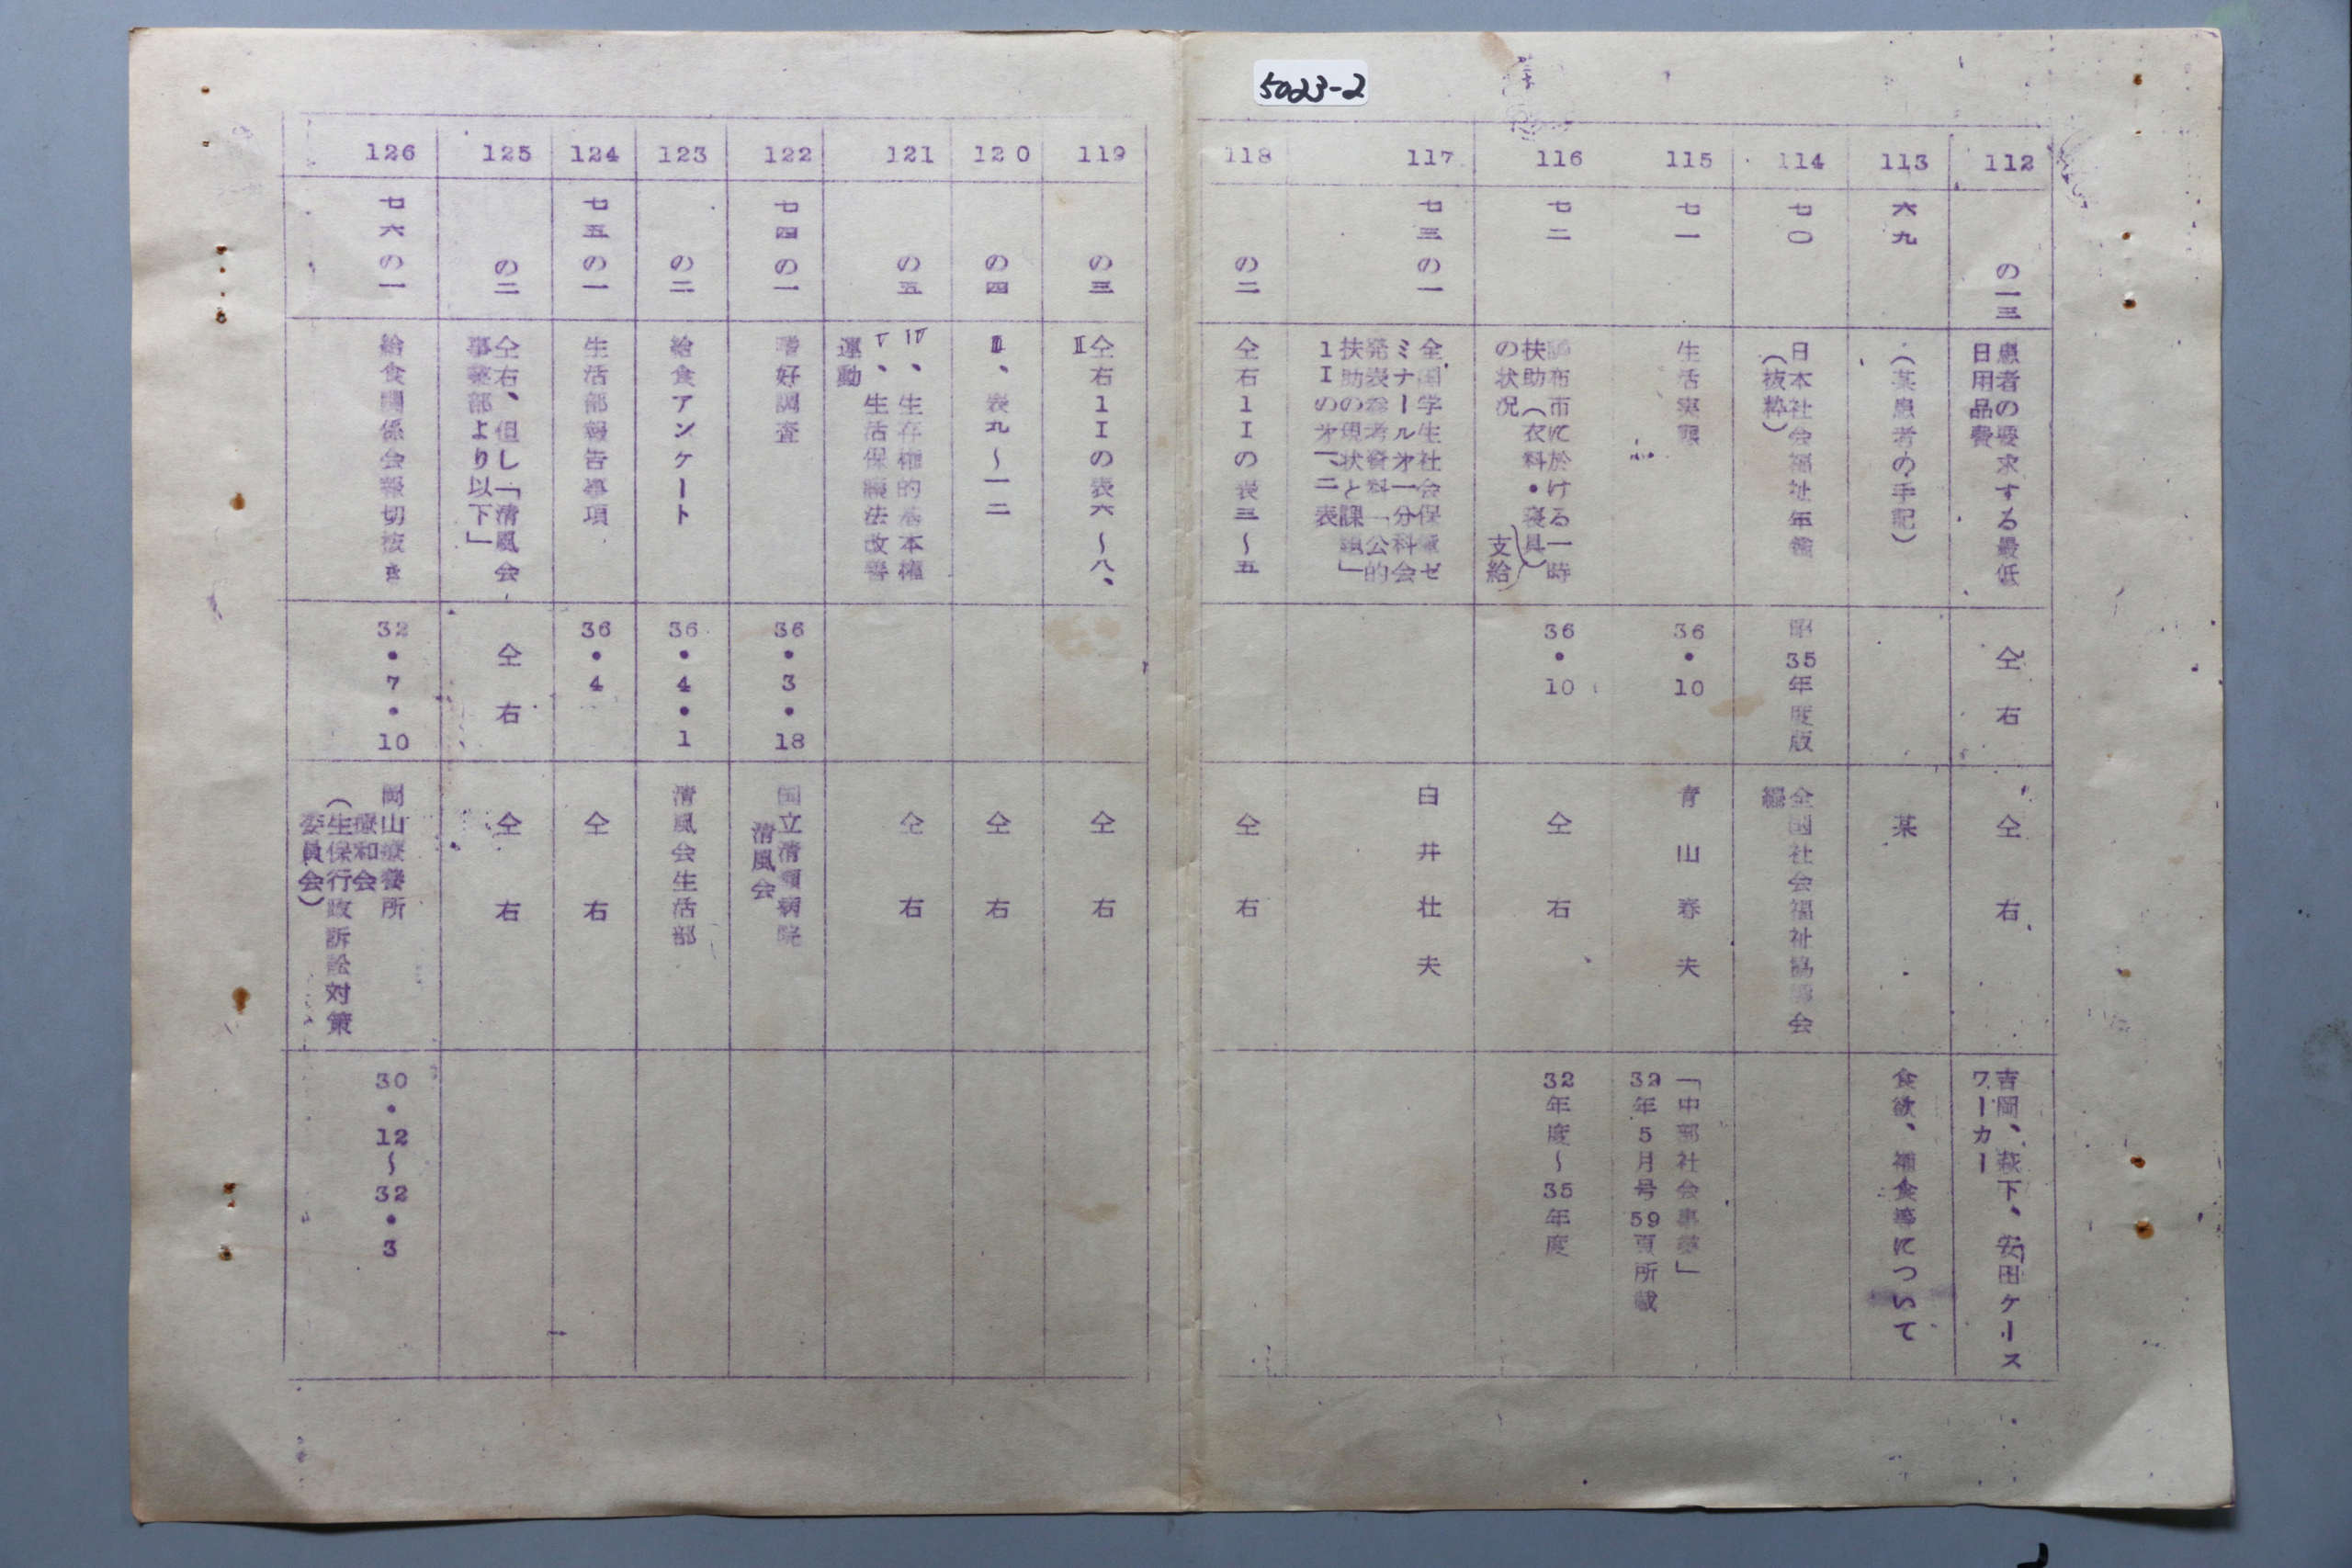 5023-2
112
の一三
患者の要求する最低
日用品費
仝右
仝右
吉岡、萩下、安田ケース
ワーカー
113
六九
(某患者の手記)
某
食欲、補食等について
114
七〇
日本社会福祉年鑑
(抜粋)
昭35年度版
全国社会福祉協議会
編
115
七一
生活実態
36・10
青山春夫
「中部社会事業」
32年5月号59頁所載
116
七二
調布市に於ける一時
扶助(衣料・寝具)支給
の状況
36・10
仝右
32年度~35年度
117
七三の一
全国学生社会保障ゼ
ミナール才一分科会
発表参考資料「公的
扶助の現状と課題」
1Iの才一、二表
白井壮夫
118
の二
仝右1Iの表三~五
仝右
119
の三
仝右1Iの表六~八、
Ⅱ
仝右
120
の四
Ⅲ、表九~一二
仝右
121
の五
Ⅳ、生存権的基本権
Ⅴ、生活保護法改善
運動
仝右
122
七四の一
嗜好調査
36・3・18
国立清瀬病院
清風会
123
の二
給食アンケート
36・4・1
清風会生活部
124
七五の一
生活部報告事項
36・4
仝右
125
の二
仝右、但し「清風会
事業部より以下」
仝右
仝右
126
七六の一
給食関係会報切抜き
32・7・10
岡山療養所
療和会
(生保行政訴訟対策
委員会)
30・12~32・3